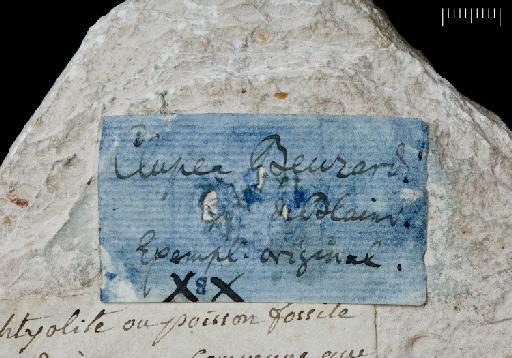 Clupea Beurardi.
de Blainv.
Exempl. original.
X B X
htyolite ou poisson fossile
commune que